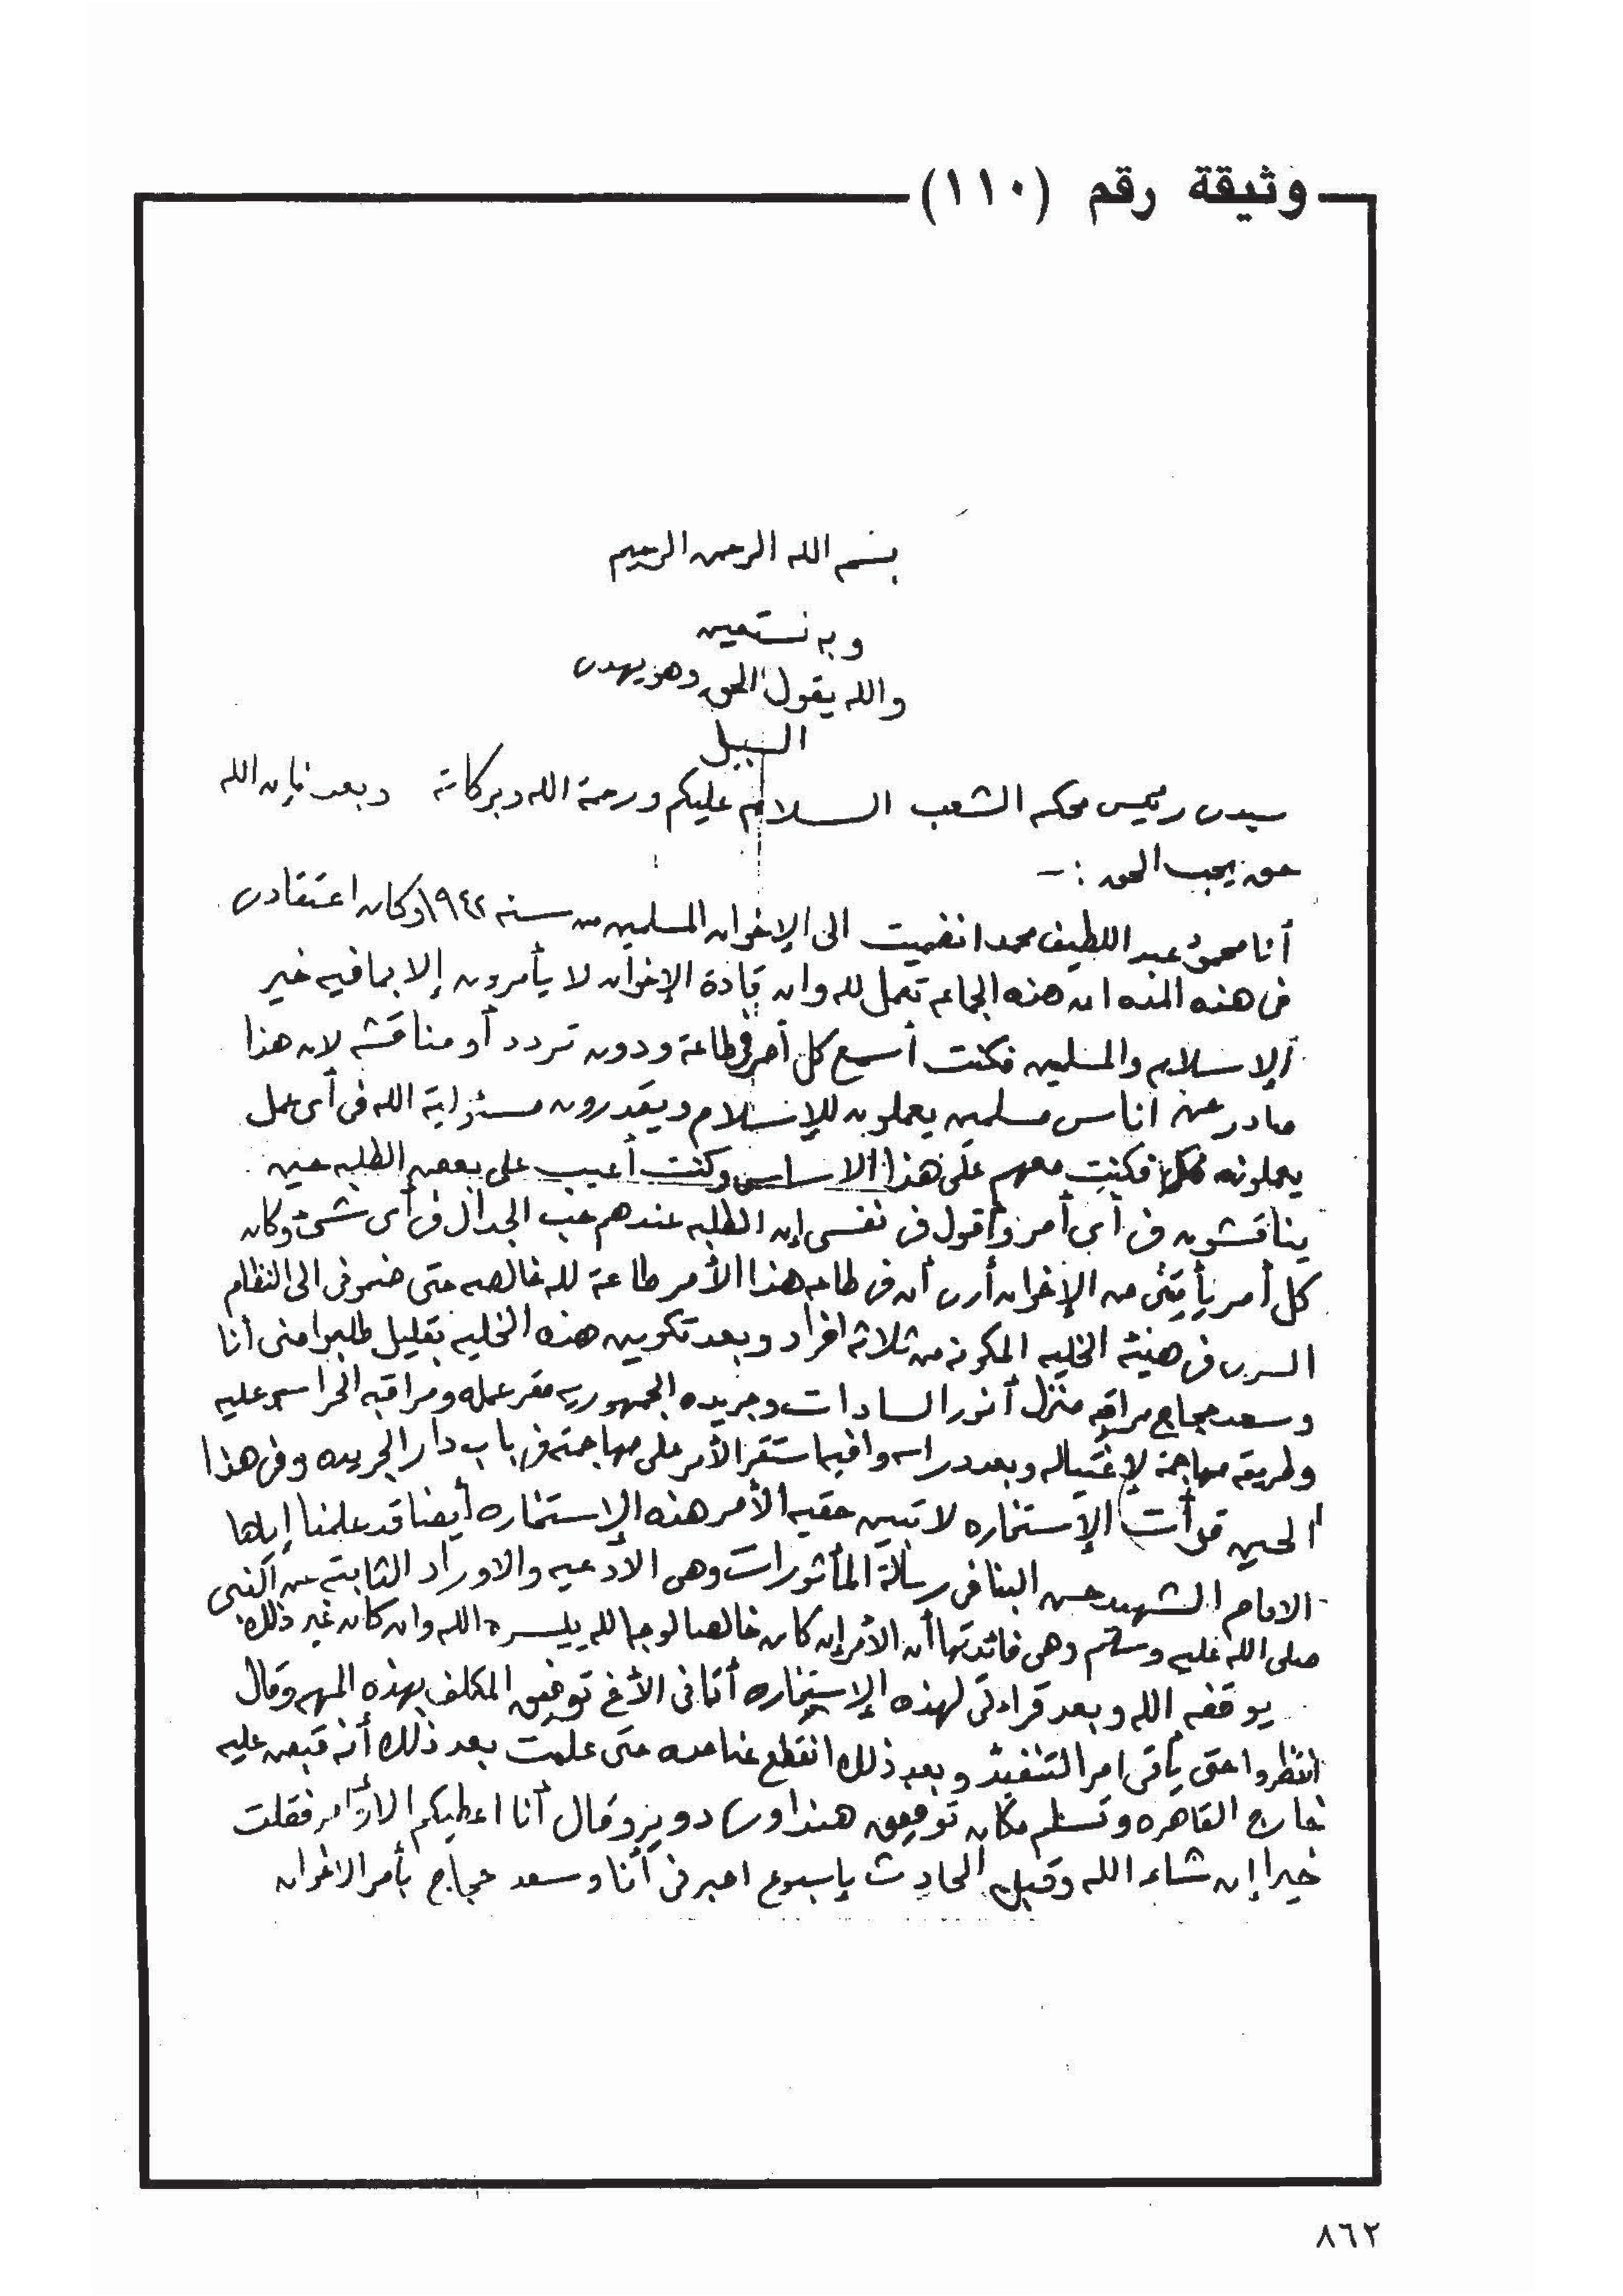 وثيقة رقم (١١٠)
بسم الله الرحمن الرحيم
وبه نستعين
والله يقول الحق وهو يهدى
السبيل
سيدى رئيس محكمه الشعب السلام عليكم ورحمة الله وبركاته وبعد فإن الله
حق يحب الحق :-
أنا محمود عبد اللطيف محمد انضميت الى الإخوان المسلمين من سنه ١٩٤٢ وكان اعتقادى
فى هذه المده ان هذه الجماعه تعمل لله وان قادة الإخوان لا يأمرون إلا بما فيه خير
الإسلام والمسلمين فكنت أسمع كل أمر فى طاعة ودون تردد أو مناقشه لان هذا
صادر عن اناس مسلمين يعملون للإسلام ويقدرون مسئولية الله فى أى عمل
يعملونه فكنت معهم على هذا الاساس وكنت أعيب على بعض الطلبه حين
يناقشون فى أى أمر وأقول فى نفسى إن الطلبه عندهم حب الجدال فى أى شىء وكان
كل أمر يأتينى من الإخوان أرى أن فى طاعه هذا الأمر طاعة لله خالصه حتى ضمونى الى النظام
السرى فى هيئة الخليه المكونه من ثلاثه افراد وبعد تكوين هذه الخليه بقليل طلبوا منى أنا
وسعد حجاج مراقبه منزل أنور السادات وجريده الجمهوريه مقر عمله ومراقبه الحراسه عليه
وطريقه مهاجمة لإغتياله وبعد دراسه وافيه استقر الأمر على مهاجمته فى باب دار الجريده وفى هذا
الحين قرأت الإستخاره لاتبين حقيه الأمر هذه الإستخاره أيضا قد علمنا إياها
الامام الشهيد حسن البنا فى رسالة المأثورات وهى الادعيه والاوراد الثابته عن النبى
صلى الله عليه وسلم وهى فائدتها أن الأمر إن كان خالصا لوجه الله ييسره الله وان كان غير ذلك
يوقفه الله وبعد قراءتى لهذه الإستخاره أتانى الأخ توفيق المكلف بهذه المهمه وقال
انتظروا حتى يأتى امر التنفيذ وبعد ذلك انقطع عنا مده حتى علمت بعد ذلك أنه قبض عليه
خارج القاهره وتسلم مكان توفيق هنداوى دوير وقال أنا اعطيكم الاوامر فقلت
خيرا إن شاء الله وقبل الحادث بإسبوع اخبرنى أنا وسعد حجاج بأمر الاخوان
٨٦٢